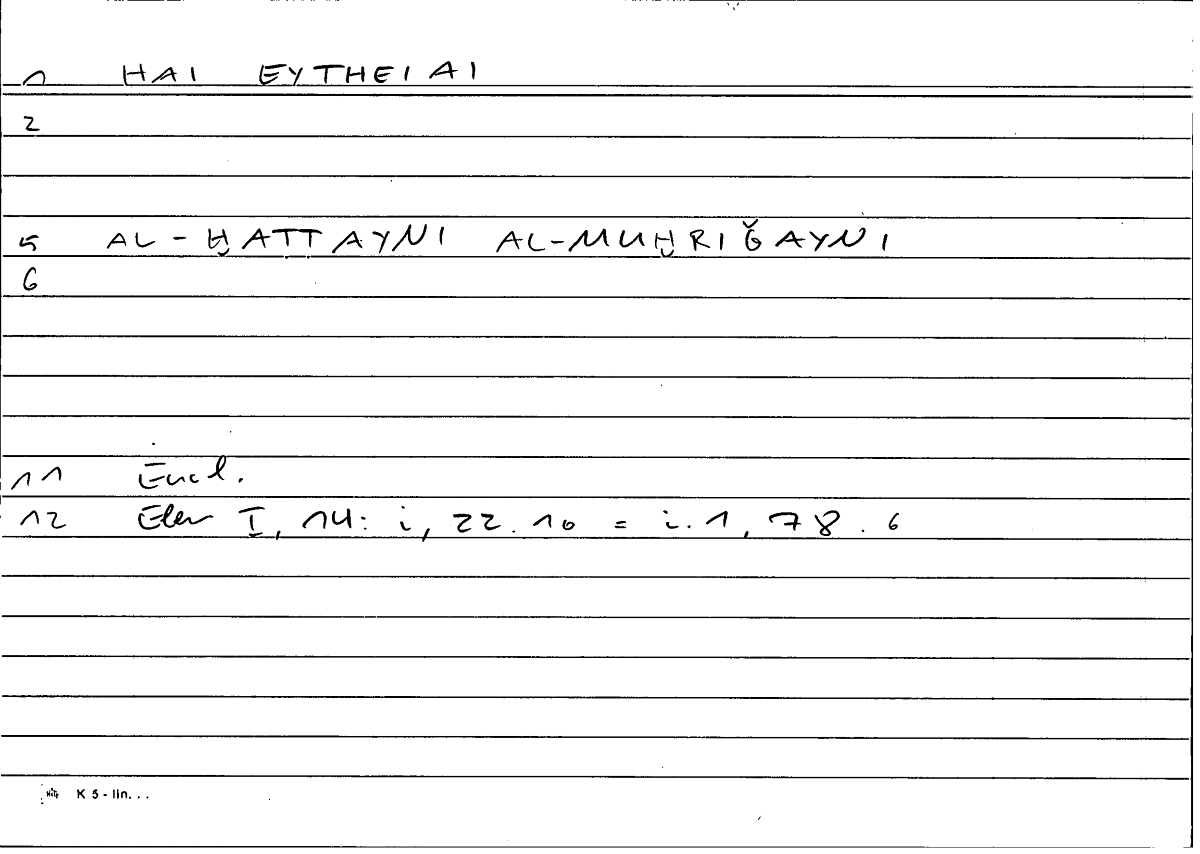 1 HAI EYTHEIAI
2
5 AL-ḪATTAYNI AL-MUḪRIǦAYNI
6
11 Eucl.
12 Elem I, 14: i, 22.10 = i.1, 78.6
K 5 - lin...